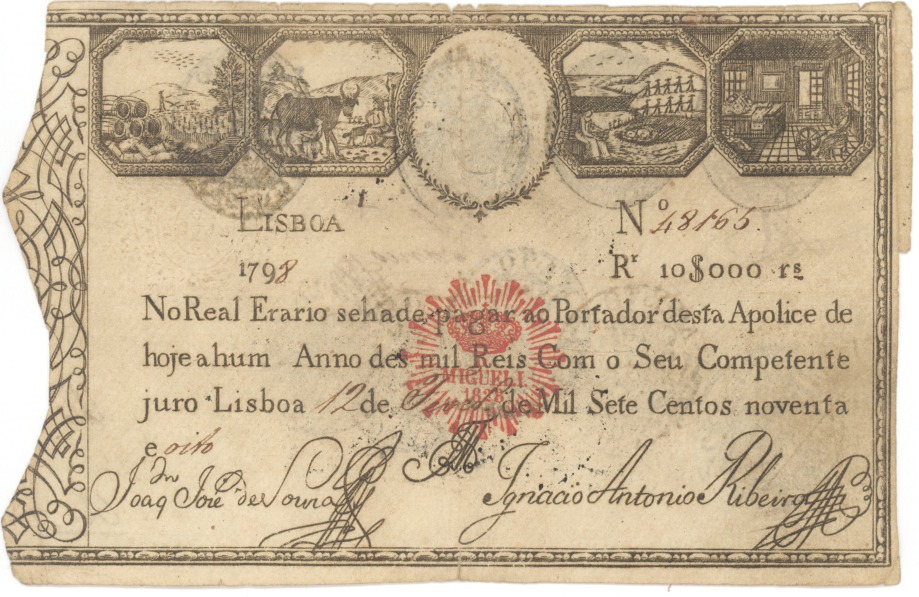 LISBOA Nº 48165.
1798 Rˢ 10$000 rs
No Real Erario se hade pagar ao Portador desta Apolice de
hoje a hum Anno des mil Reis Com o Seu Competente
MIGUEL I.
1828
juro Lisboa 12 de de Mil Sete Centos noventa
e oito
Joaq José de Souza Ignacio Antonio Ribeiro